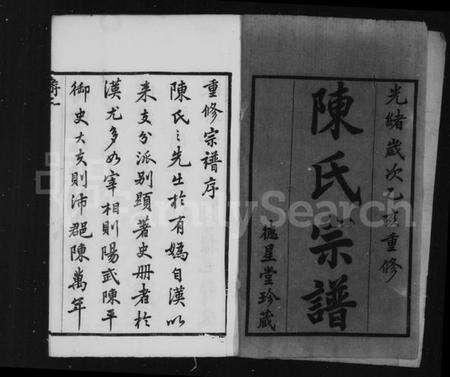 光緒歲次乙巳重修
陳氏宗譜
星堂珍藏
重修宗譜序
陳氏之先生於有媯自漢以
来支分派别顯著史册者於
漢尤多如宰相則陽武陳平
御史大夫則沛郡陳萬年
FamilySearch